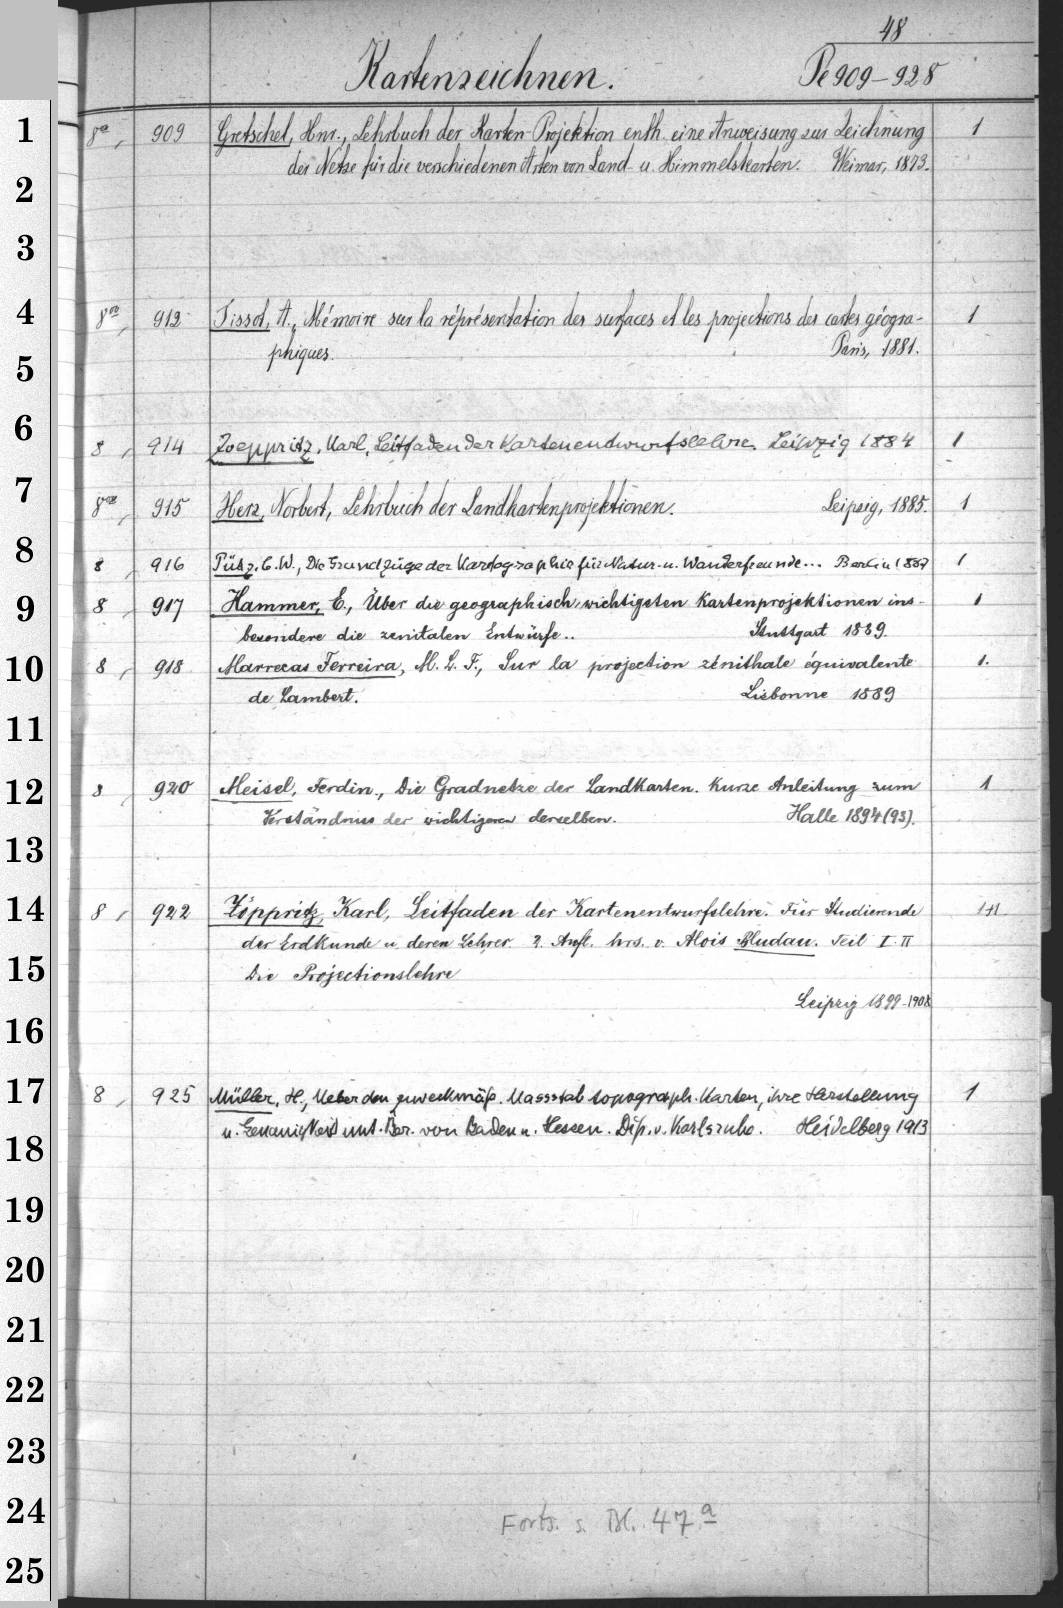 48
Kartenzeichnen. Pe 909-928
1 8°, 909 Gretschel, Hnr., Lehrbuch der Karten-Projektion enth. eine Anweisung zur Zeichnung 1
der Netze für die verschiedenen Arten von Land- u. Himmelskarten. Weimar, 1873.
2
3
4 8°, 912 Tissot, A., Mémoire sur la réprésentation des surfaces et les projections des cartes géogra- 1
phiques. Paris, 1881.
5
6 8, 914 Zoeppritz, Karl, Leitfaden der Kartenentwurfslehre. Leipzig 1884 1
7 8°, 915 Herz, Norbert, Lehrbuch der Landkartenprojektionen. Leipzig, 1885. 1
8 8, 916 Pütz, C. W., Die Grundzüge der Kartographie für Natur- u. Wanderfreunde... Berlin 1887 1
9 8, 917 Hammer, E., Über die geographisch wichtigsten Kartenprojektionen ins- 1
besondere die zenitalen Entwürfe.. Stuttgart 1889.
10 8, 918 Marrecas Ferreira, M. L. F., Sur la projection zénithale équivalente 1.
de Lambert. Lisbonne 1889
11
12 8, 920 Meisel, Ferdin., Die Gradnetze der Landkarten. Kurze Anleitung zum 1
Verständnus der wichtigeren derselben. Halle 1894 (93).
13
14 8, 922 Zöppritz, Karl, Leitfaden der Kartenentwurfslehre. Für Studierende 1+1.
der Erdkunde u. deren Lehrer. 2. Aufl. hrs. v. Alois Bludau. Teil I. II
15 Die Projectionslehre
Leipzig 1899-1908
16
17 8, 925 Müller, H., Ueber den zweckmäß. Massstab topograph. Karten, ihre Herstellung 1
u. Genauigkeit unt. Ber. von Baden u. Hessen. Diss. v. Karlsruhe. Heidelberg 1913
18
19
20
21
22
23
24 Forts. s. Bl. 47a
25